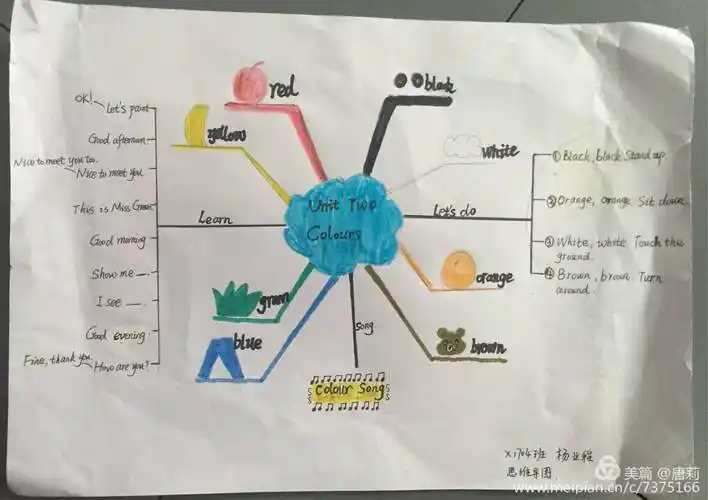 Unit Two
Colours
red
yellow
green
blue
black
white
orange
brown
Learn
OK!
Let's paint
Good afternoon
Nice to meet you too.
Nice to meet you
This is Miss Green
Good morning
Show me —.
I see —.
Good evening
Fine, thank you.
How are you?
Let's do
①Black, black Stand up
②Orange, orange Sit down
③White, white Touch the
ground.
④Brown, brown Turn
around.
song
Colour Song
X1704班 杨业程
思维导图
美篇@唐莉
www.meipian.cn/c/7375166